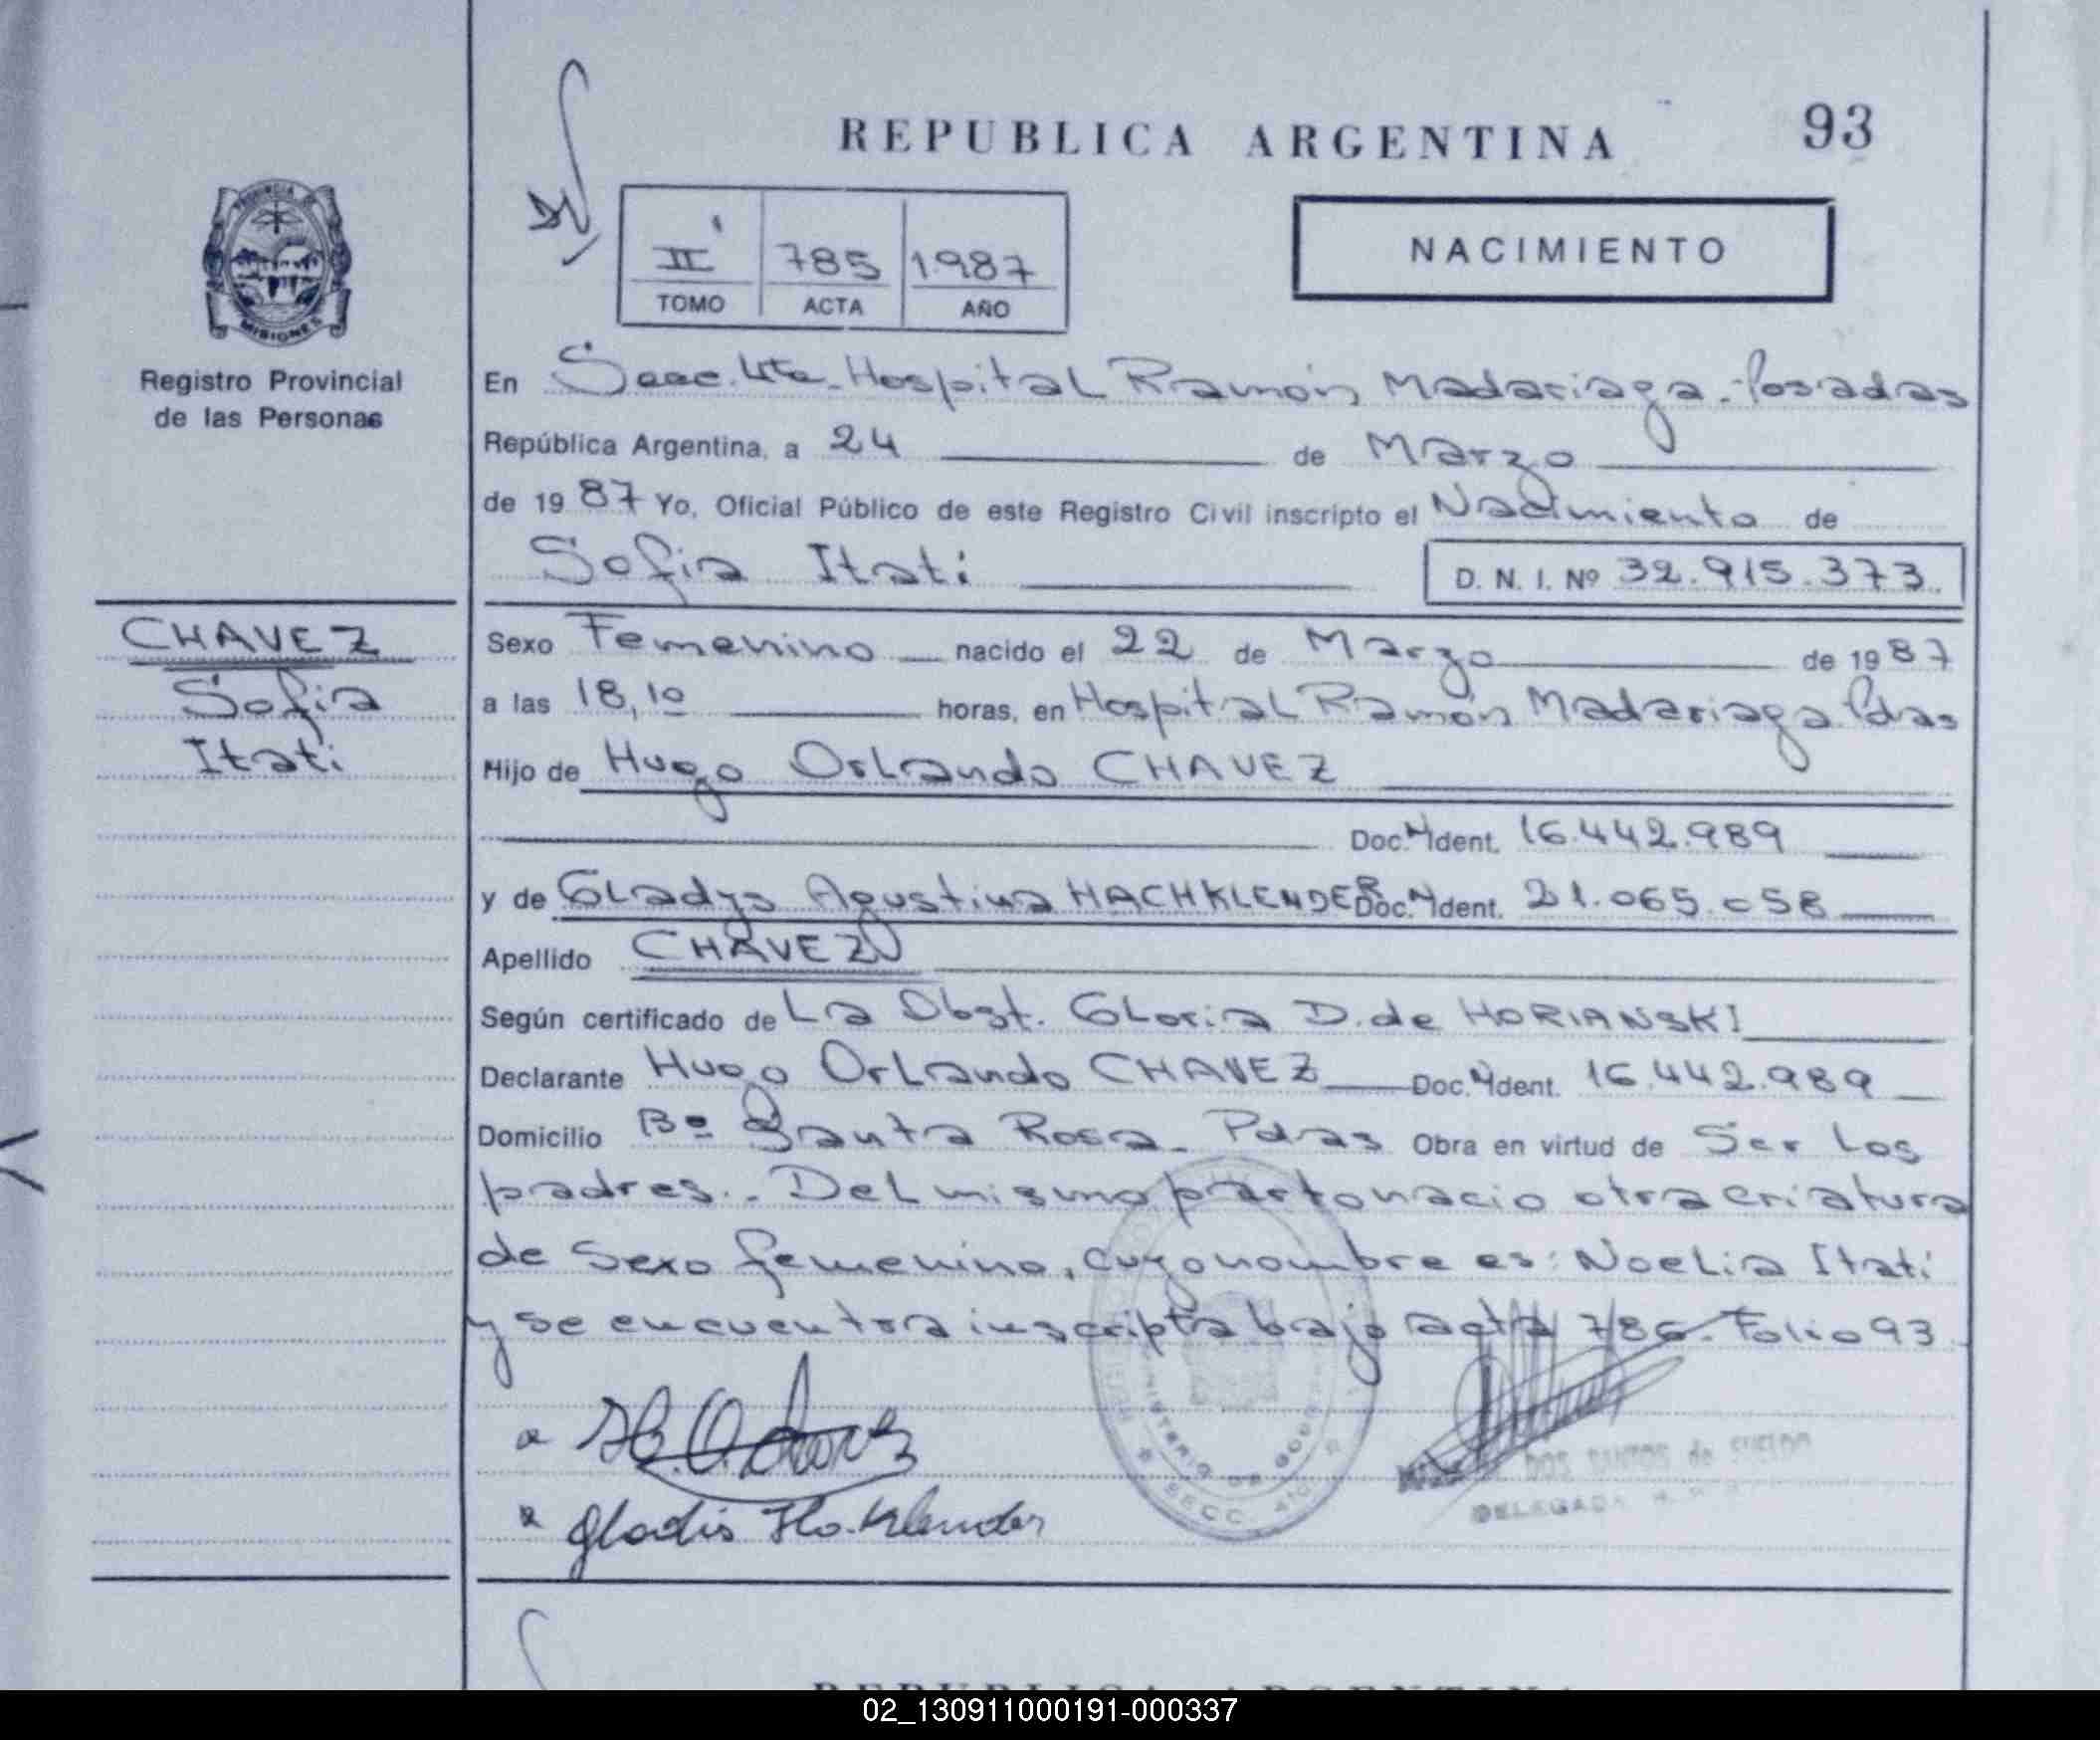 REPUBLICA ARGENTINA
93
II 785 1987
TOMO ACTA AÑO
NACIMIENTO
PROVINCIA DE
MISIONES
Registro Provincial
de las Personas
CHAVEZ
Sofia
Itatí
En Secc. 4ta. Hospital Ramón Madariaga - Posadas
República Argentina, a 24 de Marzo
de 1987 Yo, Oficial Público de este Registro Civil inscripto el Nacimiento de
Sofia Itatí D. N. I. Nº 32.915.373.
Sexo Femenino nacido el 22 de Marzo de 1987
a las 18,10 horas, en Hospital Ramón Madariaga Pdas
Hijo de Hugo Orlando CHAVEZ
Doc. N Ident. 16.442.989
y de Gladys Agustina HACHKLENDER Doc. N Ident. 21.065.058
Apellido CHAVEZ
Según certificado de La Obst. Gloria D. de HORIANSKI
Declarante Hugo Orlando CHAVEZ Doc. N Ident. 16.442.989
Domicilio Bº Santa Rosa - Pdas Obra en virtud de Ser los
padres.- Del mismo parto nacio otra criatura
de Sexo femenino, cuyo nombre es: Noelia Itatí
y se encuentra inscripta bajo acta 786 - Folio 93.
MINISTERIO DE
SECC. 4
DOS SANTOS de
DELEGADA
Gladis
REPUBLICA ARGENTINA
02_130911000191-000337